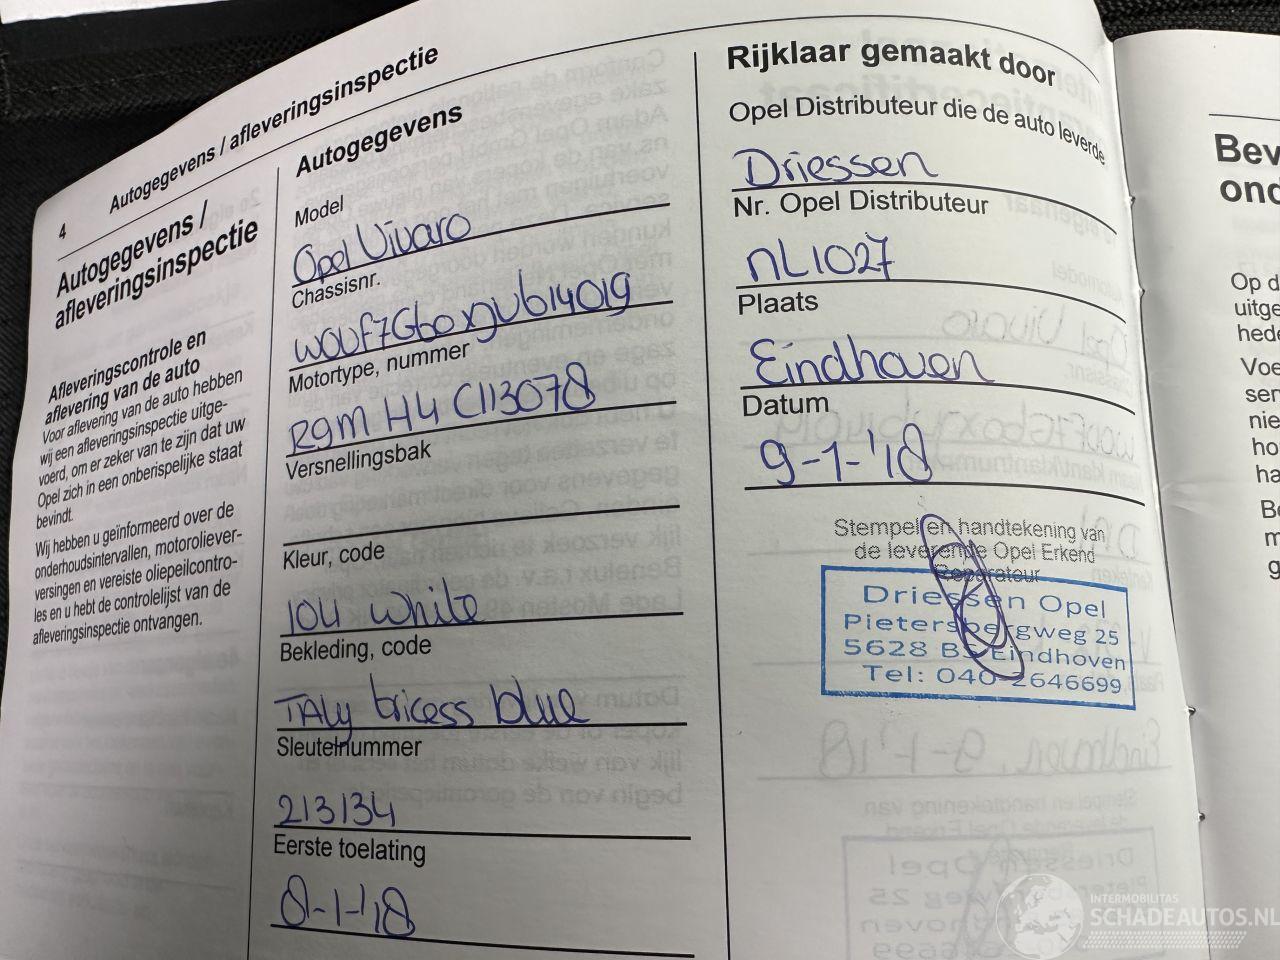 4
Autogegevens / afleveringsinspectie
Autogegevens /
afleveringsinspectie
Afleveringscontrole en
aflevering van de auto
Voor aflevering van de auto hebben
wij een afleveringsinspectie uitge-
voerd, om er zeker van te zijn dat uw
Opel zich in een onberispelijke staat
bevindt.
Wij hebben u geïnformeerd over de
onderhoudsintervallen, motoroliever-
versingen en vereiste oliepeilcontro-
les en u hebt de controlelijst van de
afleveringsinspectie ontvangen.
Autogegevens
Model
Opel Vivaro
Chassisnr.
W0VF7G60xJV614019
Motortype, nummer
R9M H4 C113078
Versnellingsbak
Kleur, code
10U white
Bekleding, code
TALy tricess blue
Sleutelnummer
213134
Eerste toelating
8-1-'18
Rijklaar gemaakt door
Opel Distributeur die de auto leverde
Driessen
Nr. Opel Distributeur
NL1027
Plaats
Eindhoven
Datum
9-1-'18
Stempel en handtekening van
de leverende Opel Erkend
Reparateur
Driessen Opel
Pietersbergweg 25
5628 BS Eindhoven
Tel: 040-2646699
Bev
ond
Op d
uitge
hede
Voe
ser
nie
ho
ha
Be
m
g
INTERMOBILITAS
SCHADEAUTOS.NL